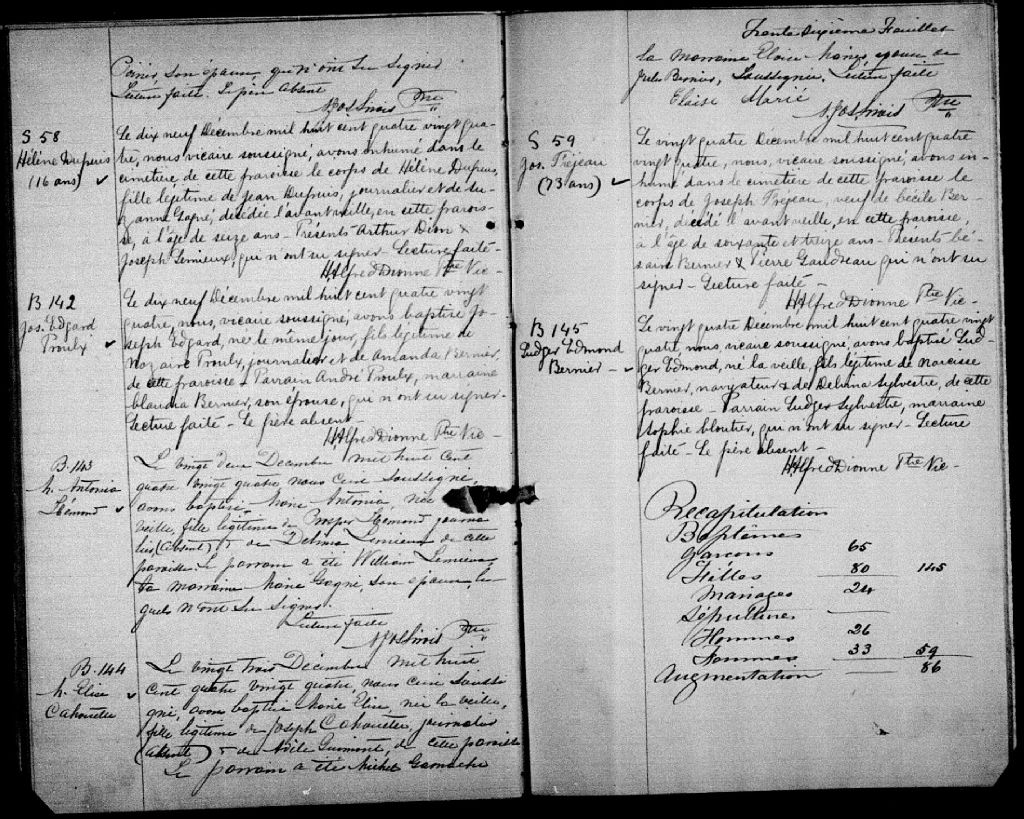 Poirier, son épouse, qui n'ont su signer
Lecture faite. Le père absent
Ptre
S 58
Hélène Dupuis
(16 ans)
Le dix neuf Décembre mil huit cent quatre vingt qua-
tre, nous, vicaire soussigné, avons inhumé dans le
cimetière de cette paroisse le corps de Hélène Dupuis,
fille légitime de Jean Dupuis, journalier et de Su-
zanne Gagné, décédée l'avant veille, en cette parois-
se, à l'âge de seize ans - Présents Arthur Dion &
Joseph Lemieux, qui n'ont su signer - Lecture faite -
H Alfred Dionne Ptre Vic -
B 142
Jos. Edgard
Proulx
Le dix neuf Décembre mil huit cent quatre vingt
quatre, nous, vicaire soussigné, avons baptisé Jo-
seph Edgard, né le même jour, fils légitime de
Nazaire Proulx, journalier et de Amanda Bernier,
de cette paroisse - Parrain André Proulx, marraine
Claudia Bernier, son épouse, qui n'ont su signer -
Lecture faite - Le père absent
H Alfred Dionne Ptre Vic -
B. 143
M. Antonia
Lemond
Le vingt deux Décembre mil huit cent
quatre vingt quatre nous Curé soussigné
avons baptisé Marie Antonia, née
veille, fille légitime de Prosper journa
lier, (absent) & de Delima Lemieux de cette
paroisse. Le parrain a été William Lemieux
la marraine Marie Gagné, son épouse, les
quels n'ont su signer.
Lecture faite
Ptre
B. 144
M. Elise
Cahouette
Le vingt trois Décembre mil huit
cent quatre vingt quatre, nous Curé soussi
gné, avons baptisé Marie Elise, née la veille,
fille légitime de Joseph Cahouette, journalier
(absent) & de Adèle Guimont, de cette paroisse
Le parrain a été Michel Gamache
Trente sixième Feuillet
la marraine épouse de
Jules Bernier, Soussignée. Lecture faite
Eloise Marié
Ptre
S 59
Jos. Fréjeau
(73 ans)
Le vingt quatre Décembre mil huit cent quatre
vingt quatre, nous, vicaire soussigné, avons in-
humé dans le cimetière de cette paroisse le
corps de Joseph Fréjeau, veuf de Cécile Ber-
nier, décédé l'avant veille, en cette paroisse,
à l'âge de soixante et treize ans - Présents Cé-
saire Bernier & Pierre Gaudreau qui n'ont su
signer - Lecture faite -
H Alfred Dionne Ptre Vic -
B 145
Ludger Edmond
Bernier -
Le vingt quatre Décembre mil huit cent quatre vingt
quatre nous, vicaire soussigné, avons baptisé Lud-
ger Edmond, né la veille, fils légitime de Narcisse
Bernier, navigateur & de Delvina Sylvestre, de cette
paroisse - Parrain Ludger Sylvestre, marraine
Sophie Cloutier, qui n'ont su signer - Lecture
faite - Le père absent -
H Alfred Dionne Ptre Vic -
Recapitulation
Baptêmes
Garçons 65
Filles 80 145
Mariages 24
Sépultures
Hommes 26
Femmes 33 59
Augmentation 86